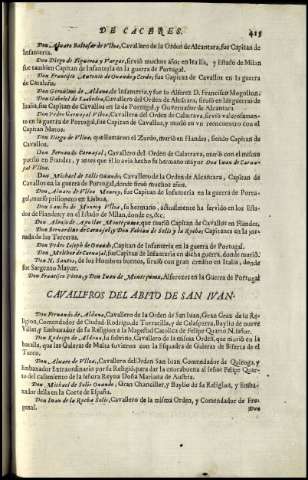 DE CACERES. 415
Don Alvaro Baltasar de Ulloa, Cavallero de la Orden de Alcantara, fue Capitan de
Infanteria.
Don Diego de Figueroa y Vargas, sirviò muchos años en Italia, y Estado de Milan
fue tambien Capitan de Infanteria en la guerra de Portugal.
Don Francisco Antonio de Ouando y Cerda; fue Capitan de Cavallos en la guerra
de Cataluña.
Don Geronimo de Aldana de Infanteria, y fue su Alferez D. Francisco Mogollon.
Don Gabriel de Saabedra, Cavallero del Orden de Alcantara, sirviò en las guerras de
Italia, fue Capitan de Cavallos en la de Portugal y Governador de Alcantara.
Don Pedro Carvajal Ulloa, Cavallero del Orden de Calatrava, sirviò
en la guerra de Portugal, fue Capitan de Cavallos, y muriò en un reencuentro con el
Capitan Maroto.
Don Diego de Ulloa, que llamaron el Zurdo, muriò en Flandes, siendo Capitan de
Cavallos.
Don Fernando de Carvajal, Cavallero del Orden de Calatrava, muriò con el
puesto en Flandes, y antes que èl lo avia hecho su hermano mayor Don Juan de Carvajal
Villalva.
Don Michael de Solis Ouando, Cavallero de la Orden de Alcantara, Capitan de
Cavallos en la guerra de Portugal, donde sirviò muchos años.
Don Alvaro de Ulloa Monroy, fue Capitan de Infanteria en la guerra de Portugal,
muriò prisionero en Lisboa.
Don Sancho de Monroy Ulloa, su hermano, actualmente ha servido en los Estados
de Flandes; y en el Estado de Milan, donde es, &c.
Don Alonso de Aguilar Montezuma, que muriò Capitan de Cavallos en Flandes.
Don Bernardino de Carvajal, y Don Fabian de Solis y la Rocha; Capitanes en la jornada
de las Terceras.
Don Pedro Joseph de Ouando, Capitan de Infanteria en la guerra de Portugal.
Don Melchor de Carvajal, fue Capitan de Infanteria en dicha guerra, donde muriò.
Don N. Santos, de los Hombres buenos, sirviò con gran credito en Italia, donde
fue Sargento Mayor.
Don Francisco Perez, y Don Juan de Montezuma, Alferezes en la Guerra de Portugal
CAVALLEROS DEL ABITO DE SAN IVAN.
Don Fernando de Aldana, Cavallero de la Orden de San Juan, Gran Cruz de la Religion,
Comendador de Ciudad-Rodrigo de Torrecilla, y de Calasparra, Baylio de nueve
Villas, y Embaxador de la Religion à la Magestad Catolica de Felipe Quarto N. Señor.
Don Rodrigo de Aldana, su sobrino, Cavallero de la misma Orden, que muriò en la
batalla, que las Galeras de Malta tuvieron con la Esquadra de Galeras de Biserta del el
Turco.
Don Alvaro de Ulloa, Cavallero del Orden San Juan, Comendador de Quiroga, y
Embaxador Extraordinario por su Religion, para dar la enorabuena al señor Felipe Quarto
del casamiento de la señora Reyna Doña Mariana de Austria.
Don Michael de Solis Ouando, Gran Chanciller, y Baylio de su Religion, y Embaxador
della en la Corte de España.
Don Juan de la Rocha Solis, Cavallero de la misma Orden, y Comendador de Fregenal.
Don